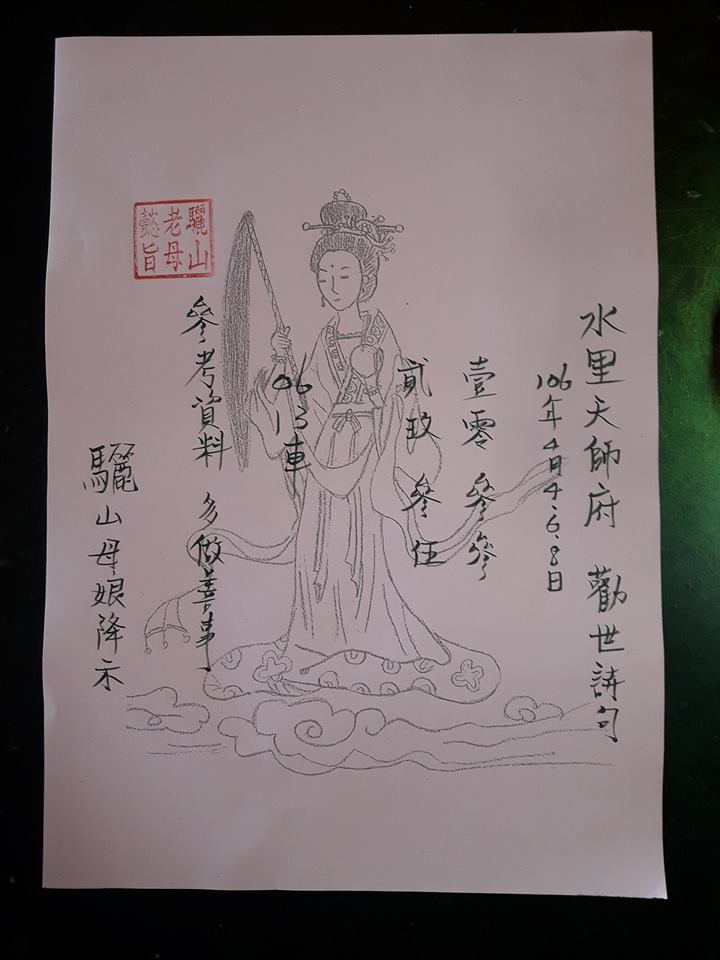 水里天師府 勸世詩句
106年4月4.6.8日
壹零 參參
貳玖 參伍
06 13車
參考資料 多做善事
驪山母娘降示
驪山
老母
懿旨